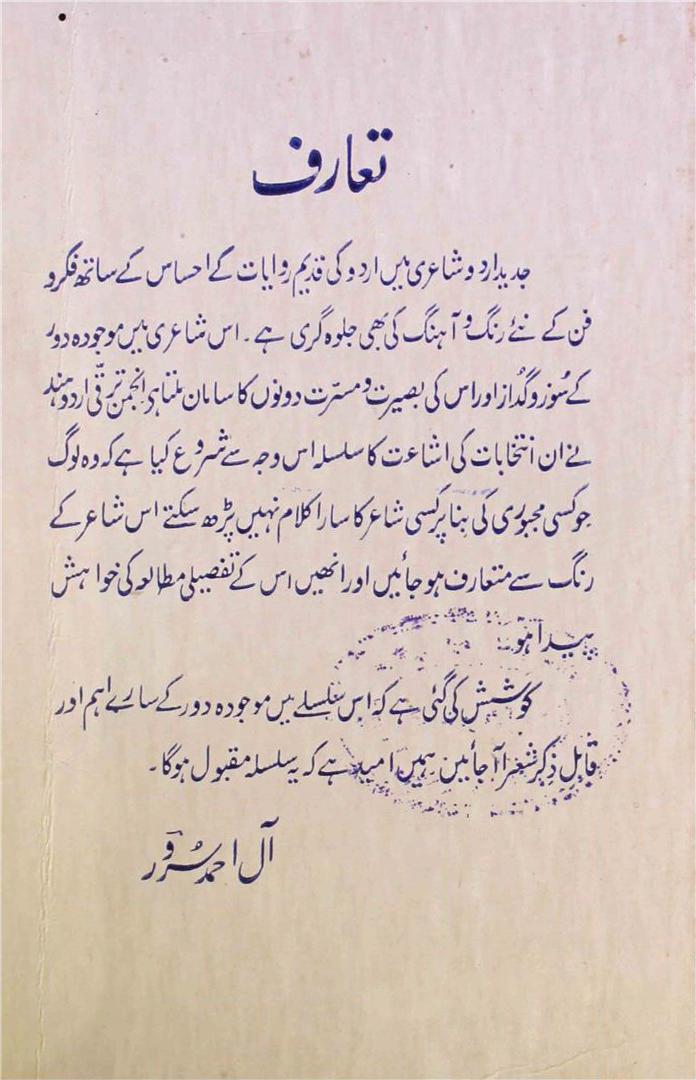 تعارف
جدید اردو شاعری میں اردو کی قدیم روایات کے احساس کے ساتھ فکر و
فن کے نئے رنگ و آہنگ کی بھی جلوہ گری ہے۔ اس شاعری میں موجودہ دور
کے سوز و گداز اور اس کی بصیرت و مسرّت دونوں کا سامان ملتا ہے انجمن ترقّی اردو ہند
نے ان انتخابات کی اشاعت کا سلسلہ اس وجہ سے شروع کیا ہے کہ وہ لوگ
جو کسی مجبوری کی بِنا پر کسی شاعر کا سارا کلام نہیں پڑھ سکتے اس شاعر کے
رنگ سے متعارف ہو جائیں اور انھیں اس کے تفصیلی مطالعہ کی خواہش
پیدا ہو۔
کوشش کی گئی ہے کہ اس سلسلے میں موجودہ دور کے سارے اہم اور
قابلِ ذِکر شعرا آ جائیں۔ ہمیں امید ہے کہ یہ سلسلہ مقبول ہوگا۔
آل احمد سُرور